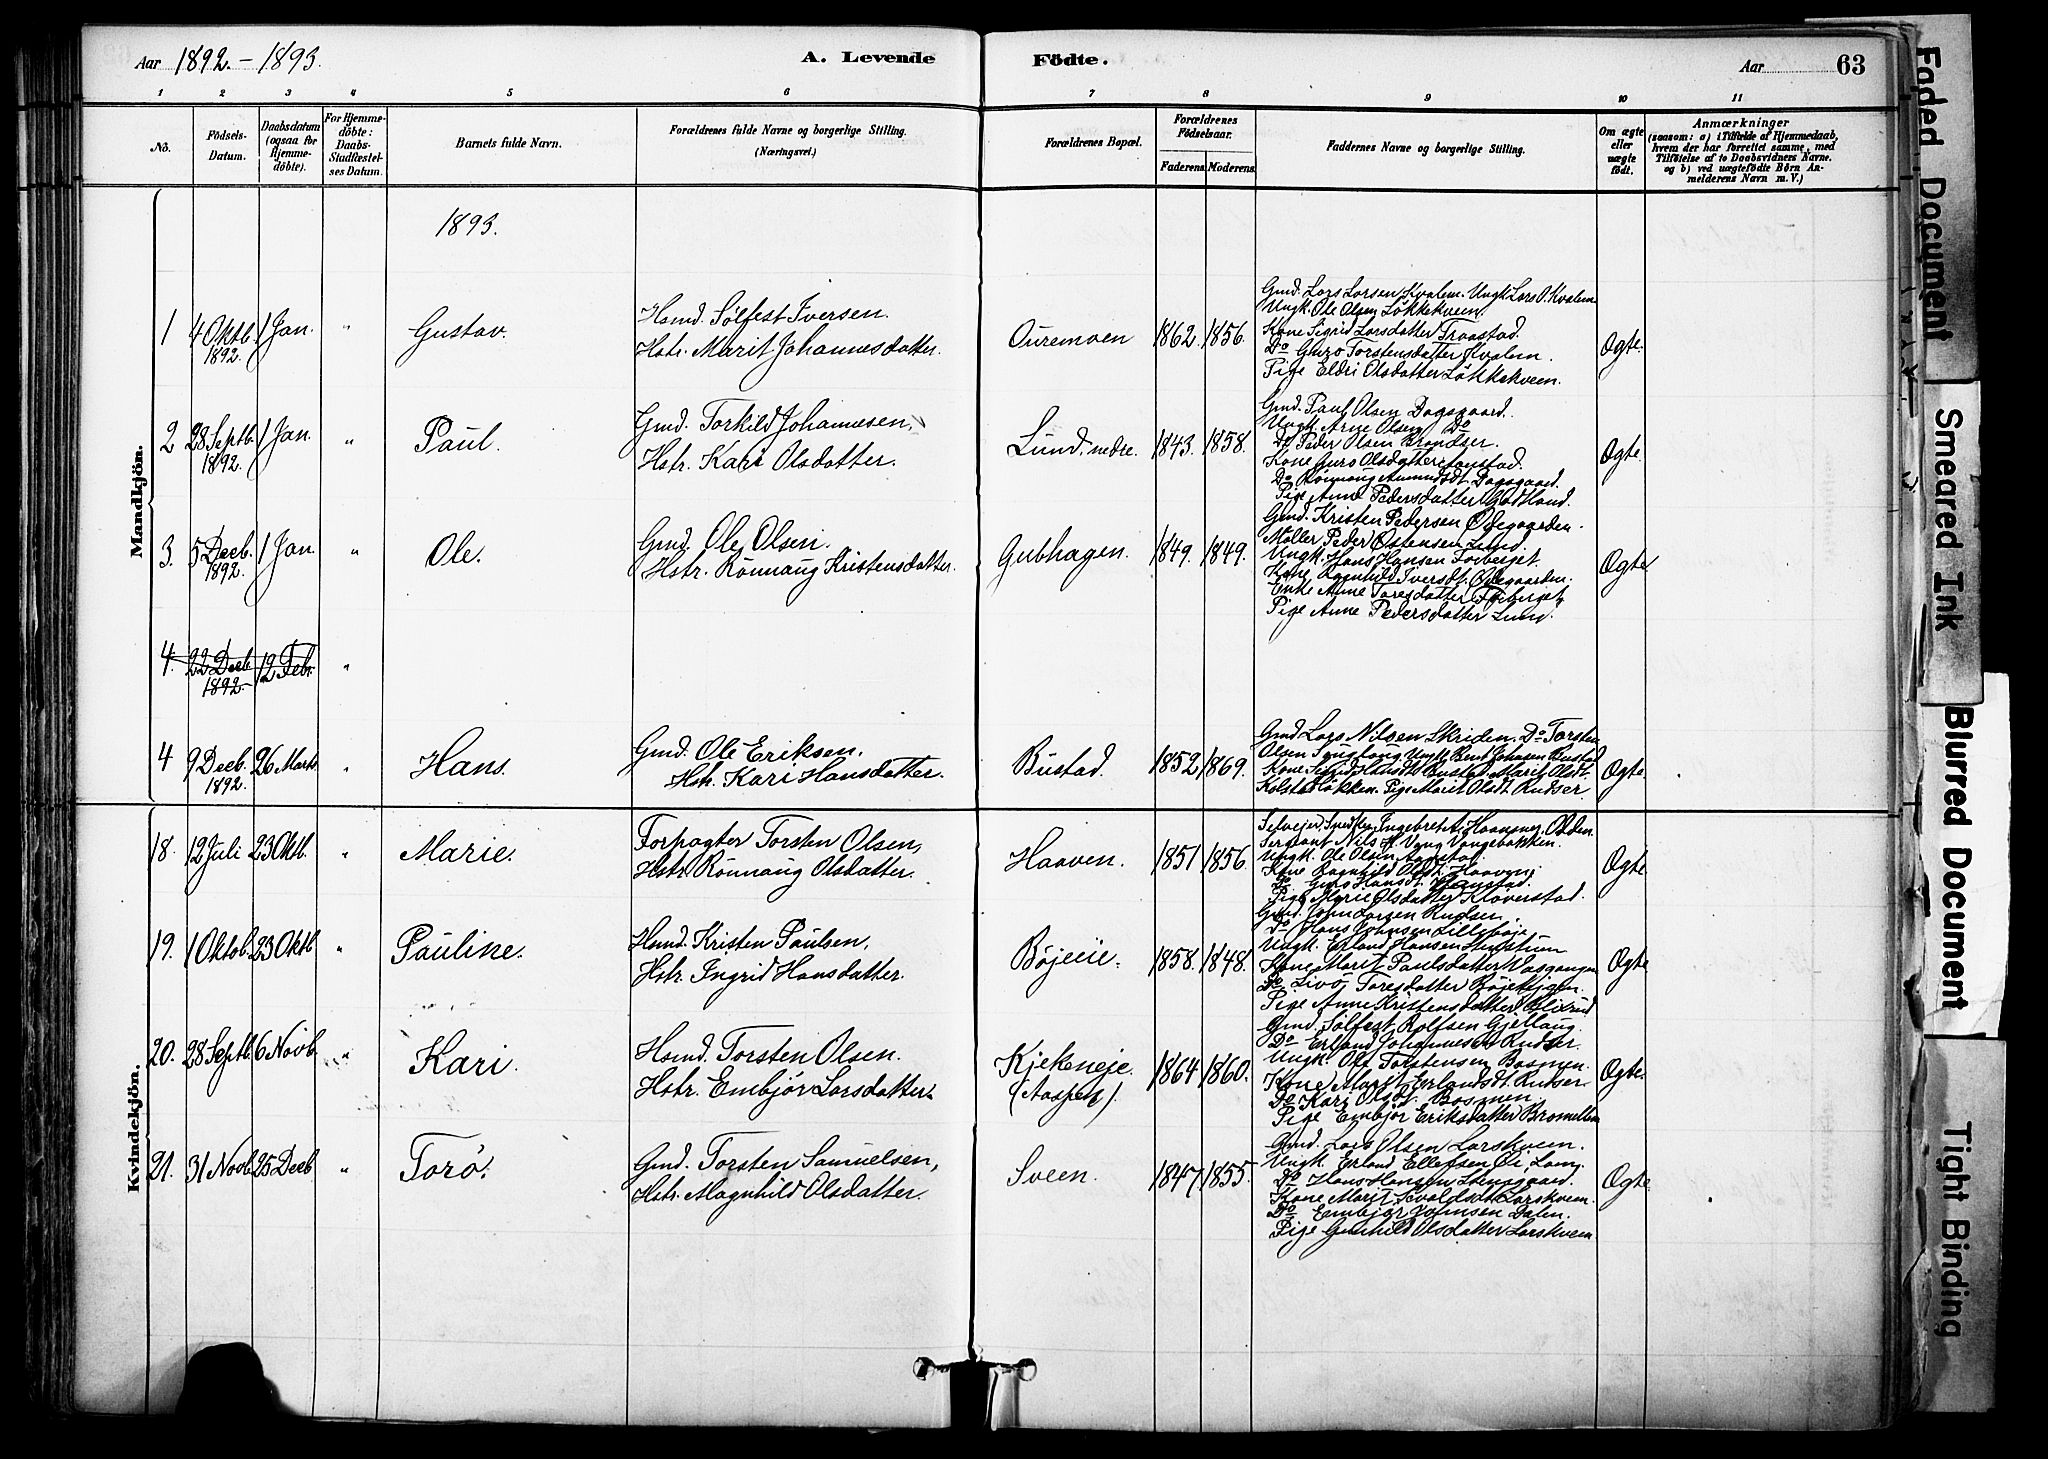 Aar 1892. - 1893.
A. Levende Födte.
Aar 63
1 2 3 4 5 6 7 8 9 10 11
No.
Födsels-Datum.
Daabsdatum (ogsaa for Hjemme-döbte).
For Hjemme-döbte: Daabs-Stadfæstel-ses Datum.
Barnets fulde Navn.
Forældrenes fulde Navne og borgerlige Stilling.
(Næringsvei.)
Forældrenes Bopæl.
Forældrenes Födselsaar.
Faderens Moderens
Faddernes Navne og borgerlige Stilling.
Om ægte eller uægte födt.
Anmærkninger
(saasom: a) i Tilfælde af Hjemmedaab, hvem der har forrettet samme, med Tilföielse af to Daabsvidners Navne, og b) ved uægtefödte Börn An-melderens Navn m. V.)
Mandkjön.
1893.
1 4 Oktb. 1892. 1 Jan. " Gustav.
Hsmd. Sölfest Iversen.
Hstr. Marit Johannesdatter.
Ouremoen 1862. 1856.
Gmd. Lars Larsen Kvalem. Ungk. Lars O. Kvalem
Ungk. Ole Olsen Lökkekveen.
Kone Sigrid Larsdatter Traastad.
Do Guro Torstensdatter Kvalem.
Pige Eldri Olsdatter Lökkekveen.
Ogte.
2 28 Septb. 1892. 1 Jan. " Paul.
Gmd. Torkild Johannesen,
Hstr. Kari Olsdatter.
Lund, nedre. 1843. 1858.
Gmd. Paul Olsen Dagsgaard.
Ungk. Arne Olsen Do
Do Peder Olsen
Kone Guro Olsdatter
Do Rönnaug Amundsdt. Dagsgaard.
Pige Anne Pedersdatter
Ogte.
3. 5 Decb. 1892. 1 Jan. " Ole.
Gmd. Ole Olsen.
Hstr. Rönnaug Kristensdatter.
Gubhagen. 1849. 1849.
Gmd. Kristen Pedersen Ödegaarden.
Möller Peder Östensen Lund.
Ungk. Hans Hansen
Kone Ragnhild Iversdt. Ödegaarden.
Enke Anne Toresdatter
Pige Anne Pedersdatter Lund.
Ogte
4. 22 Decb. 1892. 12 Febr. "
4 9 Decb. 1892. 26 Marts " Hans.
Gmd. Ole Eriksen.
Hstr. Kari Hansdatter.
Bustad. 1852 1869.
Gmd Lars Nilsen Skriden. Do Torsten
Olsen Ungk. Bustad
Kone Sigrid Hansdt. Bustad. Marit Olsdt.
Pige Marit Olsdt. Rudser
Ogte.
Kvindekjön.
18. 12 Juli 23 Oktb. " Marie.
Forpagter Torsten Olsen,
Hstr. Rönnaug Olsdatter.
Haaven. 1851 1856
Ingebret A.
Sergeant Nils H. Vang
Ungk. Ole Olsen
Kone Ragnhild Olsdt. Haaven.
Do Guro Hansdt.
Pige Marie Olsdatter Klöverstad.
Ogte.
19. 1 Oktob. 23 Oktb " Pauline.
Hsmd. Kristen Paulsen,
Hstr. Ingrid Hansdatter.
Böjeeie. 1858. 1848.
Gmd. John Larsen Rudsen.
Do Hans Johnsen
Ungk. Erland Hansen
Kone Marit Paulsdatter
Do Livö Toresdatter
Pige Anne Kristensdatter
Ogte.
20. 28 Septb 6 Novb. " Kari.
Hsmd. Torsten Olsen.
Hstr. Embjör Larsdatter.
Kjekeneje. (Aaspen). 1864 1860.
Gmd. Sölfest Rolfsen Gjellaug.
Do Erland Johannesen Rudser.
Ungk. Ole Torstensen
Kone Marit Erlandsdt. Rudser
Do Kari Olsdt.
Pige Embjör Eriksdatter
Ogte.
21. 31 Novb. 25 Decb " Torö.
Gmd. Torsten Samuelsen,
Hstr. Magnhild Olsdatter.
Sveen. 1847 1855.
Gmd. Lars Olsen Larskveen.
Ungk. Erland Ellefsen Öi, Lom.
Do Hans Hansen Stensgaard.
Kone Marit Sevaldsdt. Larskveen.
Do Embjör Johnsen Dalen.
Pige Gunhild Olsdatter Larskveen
Ogte.
Faded Document
Smeared Ink
Blurred Document
Tight Binding